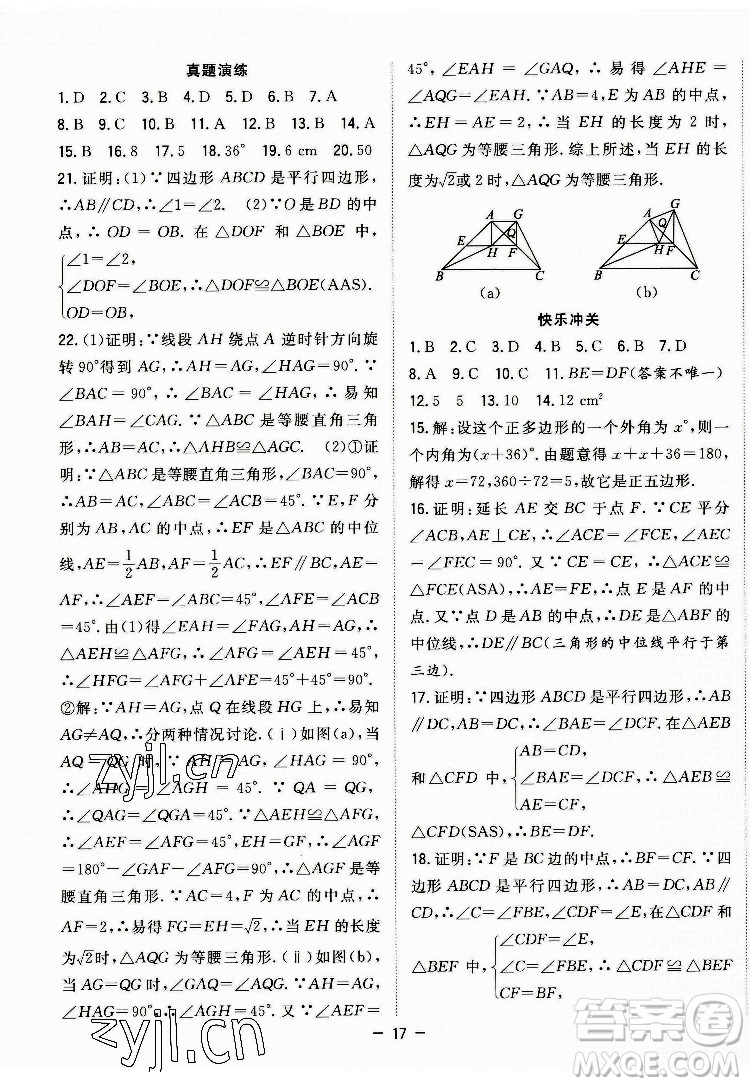 真题演练
1.D 2.C 3.B 4.D 5.D 6.B 7.A
8.B 9.C 10.B 11.B 12.B 13.B 14.A
15.B 16.8 17.5 18.36° 19.6 cm 20.50
21.证明:(1)∵四边形 ABCD 是平行四边形,
∴AB∥CD,∴∠1=∠2. (2)∵O 是 BD 的中
点,∴OD=OB. 在△DOF 和△BOE 中,
∠1=∠2,
∠DOF=∠BOE,∴△DOF≌△BOE(AAS).
OD=OB,
22.(1)证明:∵线段 AH 绕点 A 逆时针方向旋
转 90°得到 AG,∴AH=AG,∠HAG=90°. ∵
∠BAC=90°,∴∠BAC=∠HAG,∴易知
∠BAH=∠CAG. ∵△ABC 是等腰直角三角
形,∴AB=AC,∴△AHB≌△AGC. (2)①证
明:∵△ABC 是等腰直角三角形,∠BAC=
90°,∴AB=AC,∠ABC=∠ACB=45°.∵E,F
分别为 AB,AC 的中点,∴EF 是△ABC 的中位
线,AE=1/2AB,AF=1/2AC,∴EF∥BC,AE=
AF,∴∠AEF=∠ABC=45°,∠AFE=∠ACB
=45°. 由(1)得∠EAH=∠FAG,AH=AG,∴
△AEH≌△AFG,∴∠AFG=∠AEH=45°,
∴∠HFG=∠AFG+∠AFE=45°+45°=90°.
②解:∵AH=AG,点 Q 在线段 HG 上,∴易知
AG≠AQ,∴分两种情况讨论.(ⅰ)如图(a),当
AQ=QG 时,∵AH=AG,∠HAG=90°,
∴∠AHG=∠AGH=45°. ∵QA=QG,
∴∠QAG=∠QGA=45°.∵△AEH≌△AFG,
∴∠AEF=∠AFG=45°,EH=GF,∴∠AGF=
180°-∠GAF-∠AFG=90°,∴△AGF 是等
腰直角三角形. ∵AC=4,F 是 AC 的中点,∴
AF=2,∴易得 FG=EH=√2,∴当 EH 的长度
为√2时,△AQG 为等腰三角形.(ⅱ)如图(b),
当 AG=GQ 时,∵AH=AG,∠HAG=90°,
∠HAG=90°,∴∠AHG=45°. 又∵∠AEF=
45°,∠EAH=∠GAQ,∴易得∠AHE=
∠AQG=∠EAH.∵AB=4,E 为 AB 的中点,
∴EH=AE=2,∴当 EH 的长度为 2 时,
△AQG 为等腰三角形. 综上所述,当 EH 的长
度为√2或 2 时,△AQG 为等腰三角形.
A G Q E H F B C
(a)
A G Q E H F B C
(b)
快乐冲关
1.B 2.C 3.C 4.D 5.B 6.B 7.D
8.A 9.C 10.C 11.BE=DF(答案不唯一)
12.5 5 13.10 14.12 cm²
15.解:设这个正多边形的一个外角为 x°,则一
个内角为(x+36)°. 由题意得 x+x+36=180,
解得 x=72,360÷72=5,故它是正五边形.
16.证明:延长 AE 交 BC 于点 F. ∵CE 平分
∠ACB,AE⊥CE,∴∠ACE=∠FCE,∠AEC
=∠FEC=90°. 又∵CE=CE,∴△ACE≌
△FCE(ASA),∴AE=FE,∴E 是 AF 的中
点. 又∵点 D 是 AB 的中点,∴DE 是△ABF 的
中位线,∴DE∥BC(三角形的中位线平行于第
三边).
17.证明:∵四边形 ABCD 是平行四边形,∴AB
∥DC,AB=DC,∴∠BAE=∠DCF. 在△AEB
AB=CD,
和△CFD 中,∠BAE=∠DCF,∴△AEB≌
AE=CF,
△CFD(SAS),∴BE=DF.
18.证明:∵F 是 BC边的中点,∴BF=CF. ∵四
边形 ABCD 是平行四边形,∴AB=DC,AB∥
CD,∴∠C=∠FBE,∠CDF=∠E. 在△CDF和
∠CDF=∠E,
△BEF 中,∠C=∠FBE,∴△CDF≌△BEF
CF=BF,
17
zyjl.cn
zyjl.cn
答案圈
MXQE.COM